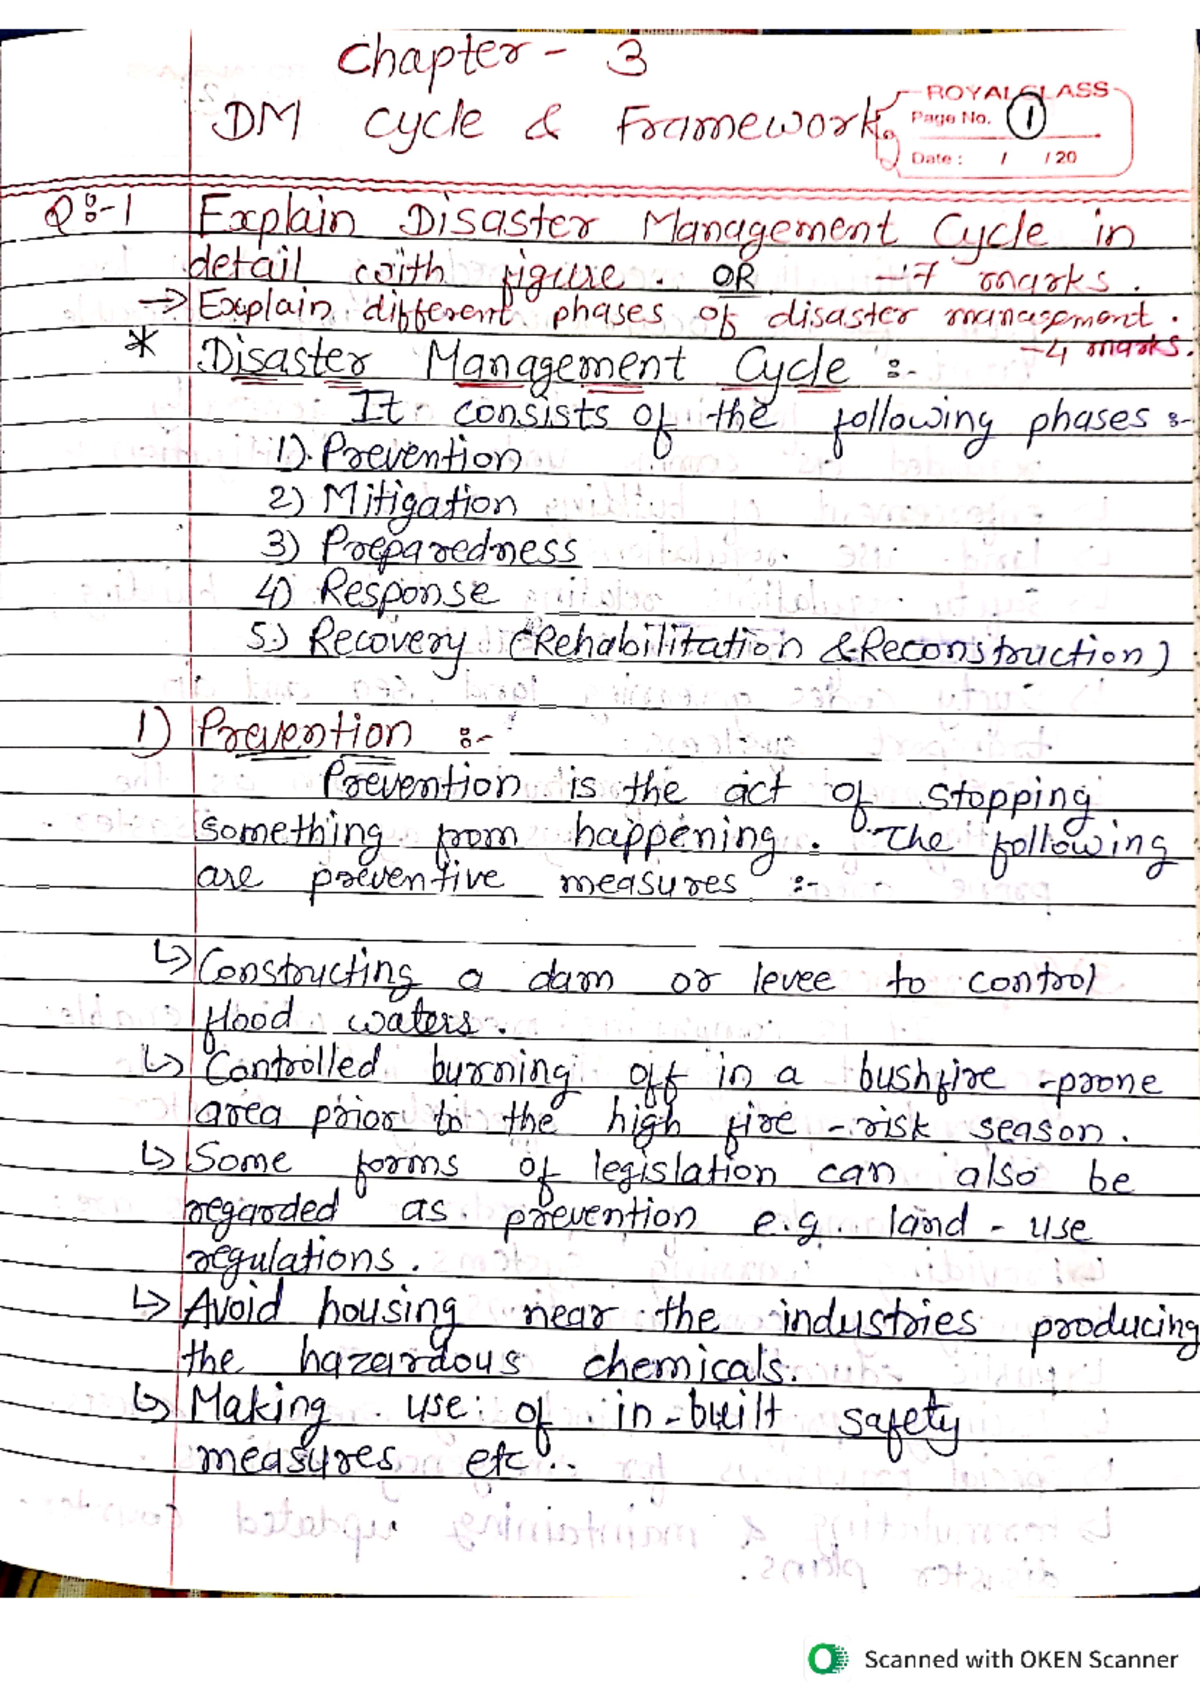 Chapter - 3
DM cycle & Framework.
ROYAL CLASS
Page No. 1
Date : / / 20
Q:-1 Explain Disaster Management Cycle in
detail with figure. OR -7 marks.
→ Explain different phases of disaster management.
-4 marks.
* Disaster Management Cycle :-
It consists of the following phases :-
1). Prevention
2) Mitigation
3) Preparedness
4) Response
5.) Recovery (Rehabilitation & Reconstruction)
1) Prevention :-
Prevention is the act of stopping
something from happening. The following
are preventive measures :-
↳ Constructing a dam or levee to control
flood waters.
↳ Controlled burning off in a bushfire -prone
area prior to the high fire -risk season.
↳ Some forms of legislation can also be
regarded as prevention e.g. land - use
regulations.
↳ Avoid housing near the industries producing
the hazardous chemicals.
↳ Making use of in-built safety
measures etc..
Scanned with OKEN Scanner